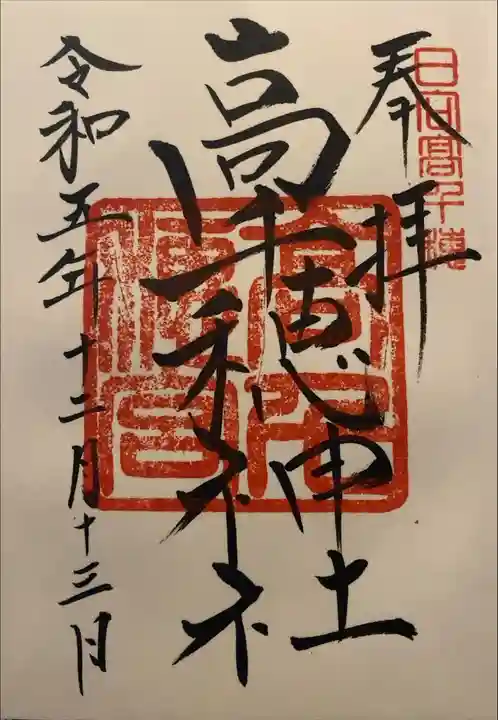 日向髙千穂
奉拝
高千穂神社
令和五年十二月十三日